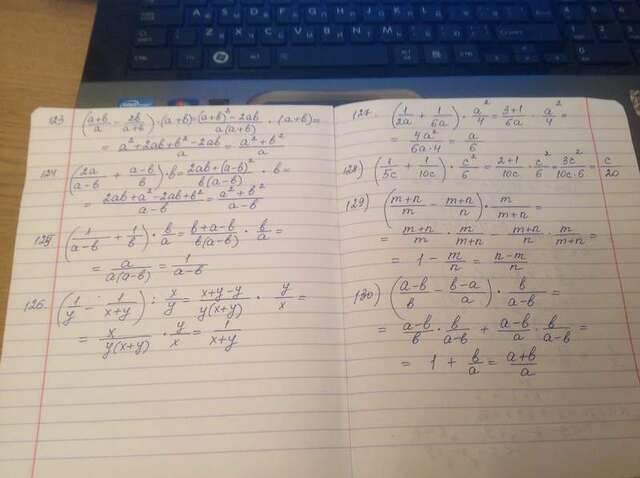 123 (a+b/a - 2b/a+b) · (a+b) = (a+b)² - 2ab / a(a+b) · (a+b) =
= a² + 2ab + b² - 2ab / a = a² + b² / a
124. (2a/a-b + a-b/b) · b = 2ab + (a-b)² / b(a-b) · b =
= 2ab + a² - 2ab + b² / a-b = a² + b² / a-b
125 (1/a-b + 1/b) · b/a = b+a-b / b(a-b) · b/a =
= a / a(a-b) = 1/a-b
126. (1/y - 1/x+y) : x/y = x+y-y / y(x+y) · y/x =
= x / y(x+y) · y/x = 1/x+y
127. (1/2a + 1/6a) · a²/4 = 3+1/6a · a²/4 =
= 4a²/6a·4 = a/6
128) (1/5c + 1/10c) · c²/6 = 2+1/10c · c²/6 = 3c²/10c·6 = c/20
129) (m+n/m - m+n/n) · m/m+n =
= m+n/m · m/m+n - m+n/n · m/m+n =
= 1 - m/n = n-m/n
130) (a-b/b - b-a/a) · b/a-b =
= a-b/b · b/a-b + a-b/a · b/a-b =
= 1 + b/a = a+b/a